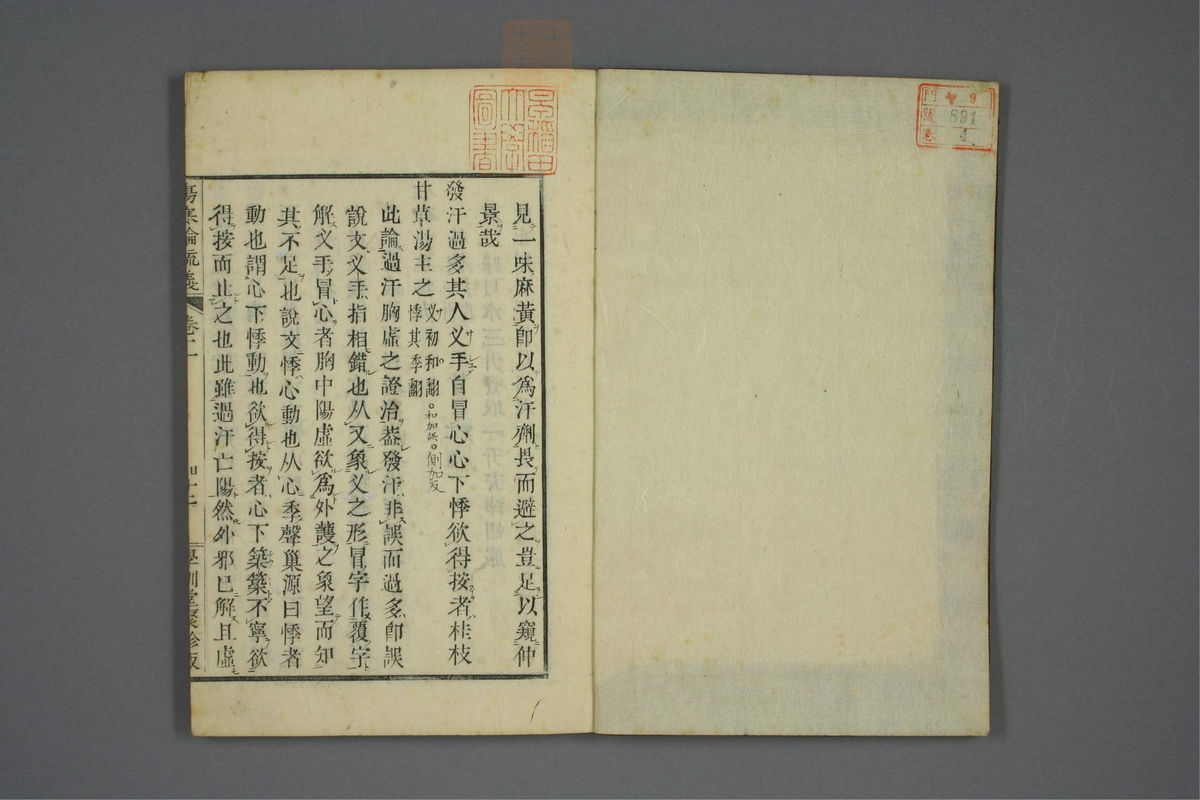 門 9
號 891
卷 4
早稻田
大學
圖書
見一味麻黃卽以爲汗劑畏而避之豈足以窺仲
景哉
發汗過多其人叉手自冒心心下悸欲得按者桂枝
甘草湯主之叉初和翻。和加誤。側加反
悸其季翻
此論過汗胸虛之證治蓋發汗非誤而過多卽誤
說文叉手指相錯也从又象叉之形冒字作覆字
解叉手冒心者胸中陽虛欲爲外護之象望而知
其不足也說文悸心動也从心季聲巢源曰悸者
動也謂心下悸動也欲得按者心下築築不寧欲
得按而止之也此雖過汗亡陽然外邪已解且虛
傷寒論疏義 卷二 學訓堂聚珍版